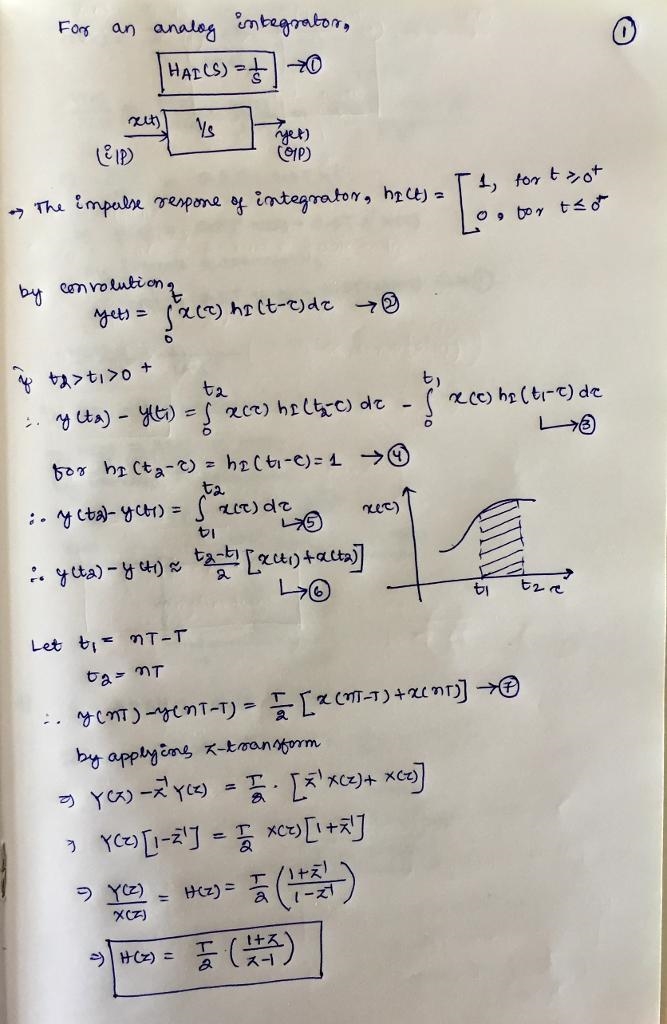 ①
For an analog integrator,
H_AI(S) = 1/S → ①
x(t) 1/s y(t)
(i/p) (o/p)
→ The impulse respone of integrator, h_I(t) = [1, for t ≥ 0⁺
0, for t ≤ 0⁺
by convolution,
y(t) = ∫₀ᵗ x(τ) h_I(t-τ)dτ → ②
if t₂>t₁>0⁺
∴ y(t₂) - y(t₁) = ∫₀^t₂ x(τ) h_I(t₂-τ) dτ - ∫₀^t₁ x(τ) h_I(t₁-τ) dτ
↳ ③
for h_I(t₂-τ) = h_I(t₁-τ) = 1 → ④
∴ y(t₂)-y(t₁) = ∫_t₁^t₂ x(τ) dτ ↳ ⑤
x(τ)
∴ y(t₂) - y(t₁) ≈ (t₂-t₁)/2 [x(t₁)+x(t₂)]
↳ ⑥
t₁ t₂ τ
Let t₁ = nT-T
t₂ = nT
∴ y(nT)-y(nT-T) = T/2 [x(nT-T)+x(nT)] → ⑦
by applying z-transform
⇒ Y(z) - z⁻¹Y(z) = T/2 · [z⁻¹X(z)+X(z)]
⇒ Y(z)[1-z⁻¹] = T/2 X(z)[1+z⁻¹]
⇒ Y(z)/X(z) = H(z) = T/2 (1+z⁻¹/1-z⁻¹)
⇒ H(z) = T/2 (1+z/z-1)